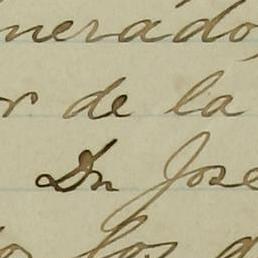 nerado,
r de la
Dn Jose
los